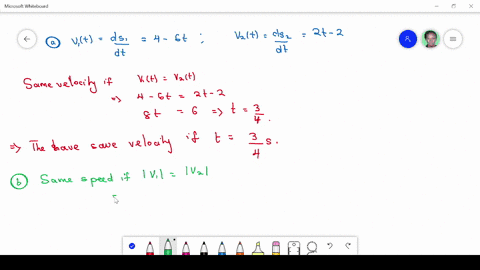 Microsoft Whiteboard
(a) V₁(t) = ds₁/dt = 4 - 6t ; V₂(t) = ds₂/dt = 2t - 2
Same velocity if V₁(t) = V₂(t)
⇒ 4 - 6t = 2t - 2
8t = 6 ⇒ t = 3/4.
⇒ The have save velocity if t = 3/4 s.
(b) Same speed if |V₁| = |V₂|